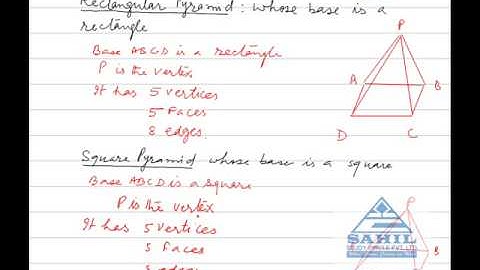 Rectangular Pyramid : whose base is a
rectangle
Base ABCD is a rectangle
P is the vertex
It has 5 vertices
5 Faces
8 edges.
P
A
B
D
C
Square Pyramid whose base is a square
Base ABCD is a square
P is the vertex
It has 5 vertices
5 Faces
8 edges
P
B
SAHIL